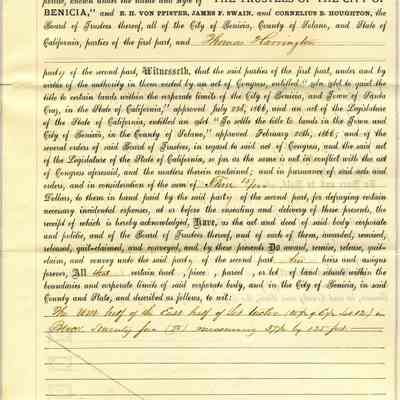 BENICIA," and E. H. VON PFISTER, JAMES F. SWAIN, and CORNELIUS B. HOUGHTON, the
Board of Trustees thereof, all of the City of Benicia, County of Solano, and State of
California, parties of the first part, and Thomas Harrington
party of the second part, Witnesseth, that the said parties of the first part, under and by
virtue of the authority in them vested by an act of Congress, entitled "An act to quiet the
title to certain lands within the corporate limits of the City of Benicia, and Town of Santa
Cruz, in the State of California," approved July 23d, 1866, and an act of the Legislature
of the State of California, entitled an act "To settle the title to lands in the Town and
City of Benicia, in the County of Solano," approved February 20th, 1866; and of the
several orders of said Board of Trustees, in regard to said act of Congress, and the said act
of the Legislature of the State of California, so far as the same is not in conflict with the act
of Congress aforesaid, and the matters therein contained; and in pursuance of said acts and
orders, and in consideration of the sum of
Dollars, to them in hand paid by the said party of the second part, for defraying certain
necessary incidental expenses, at or before the ensealing and delivery of these presents, the
receipt of which is hereby acknowledged, Have, as the act and deed of said body corporate
and politic, and of the Board of Trustees thereof, and of each of them, awarded, remised,
released, quit-claimed, and conveyed, and by these presents Do award, remise, release, quit-
claim, and convey unto the said party of the second part his heirs and assigns
forever, All that certain tract, piece, parcel, or lot of land situate within the
boundaries and corporate limits of said corporate body, and in the City of Benicia, in said
County and State, and described as follows, to wit:
The West half of the East half of Lot twelve (W½ of E½ Lot 12) in
Block Seventy five (75) measuring 37½ by 125 feet